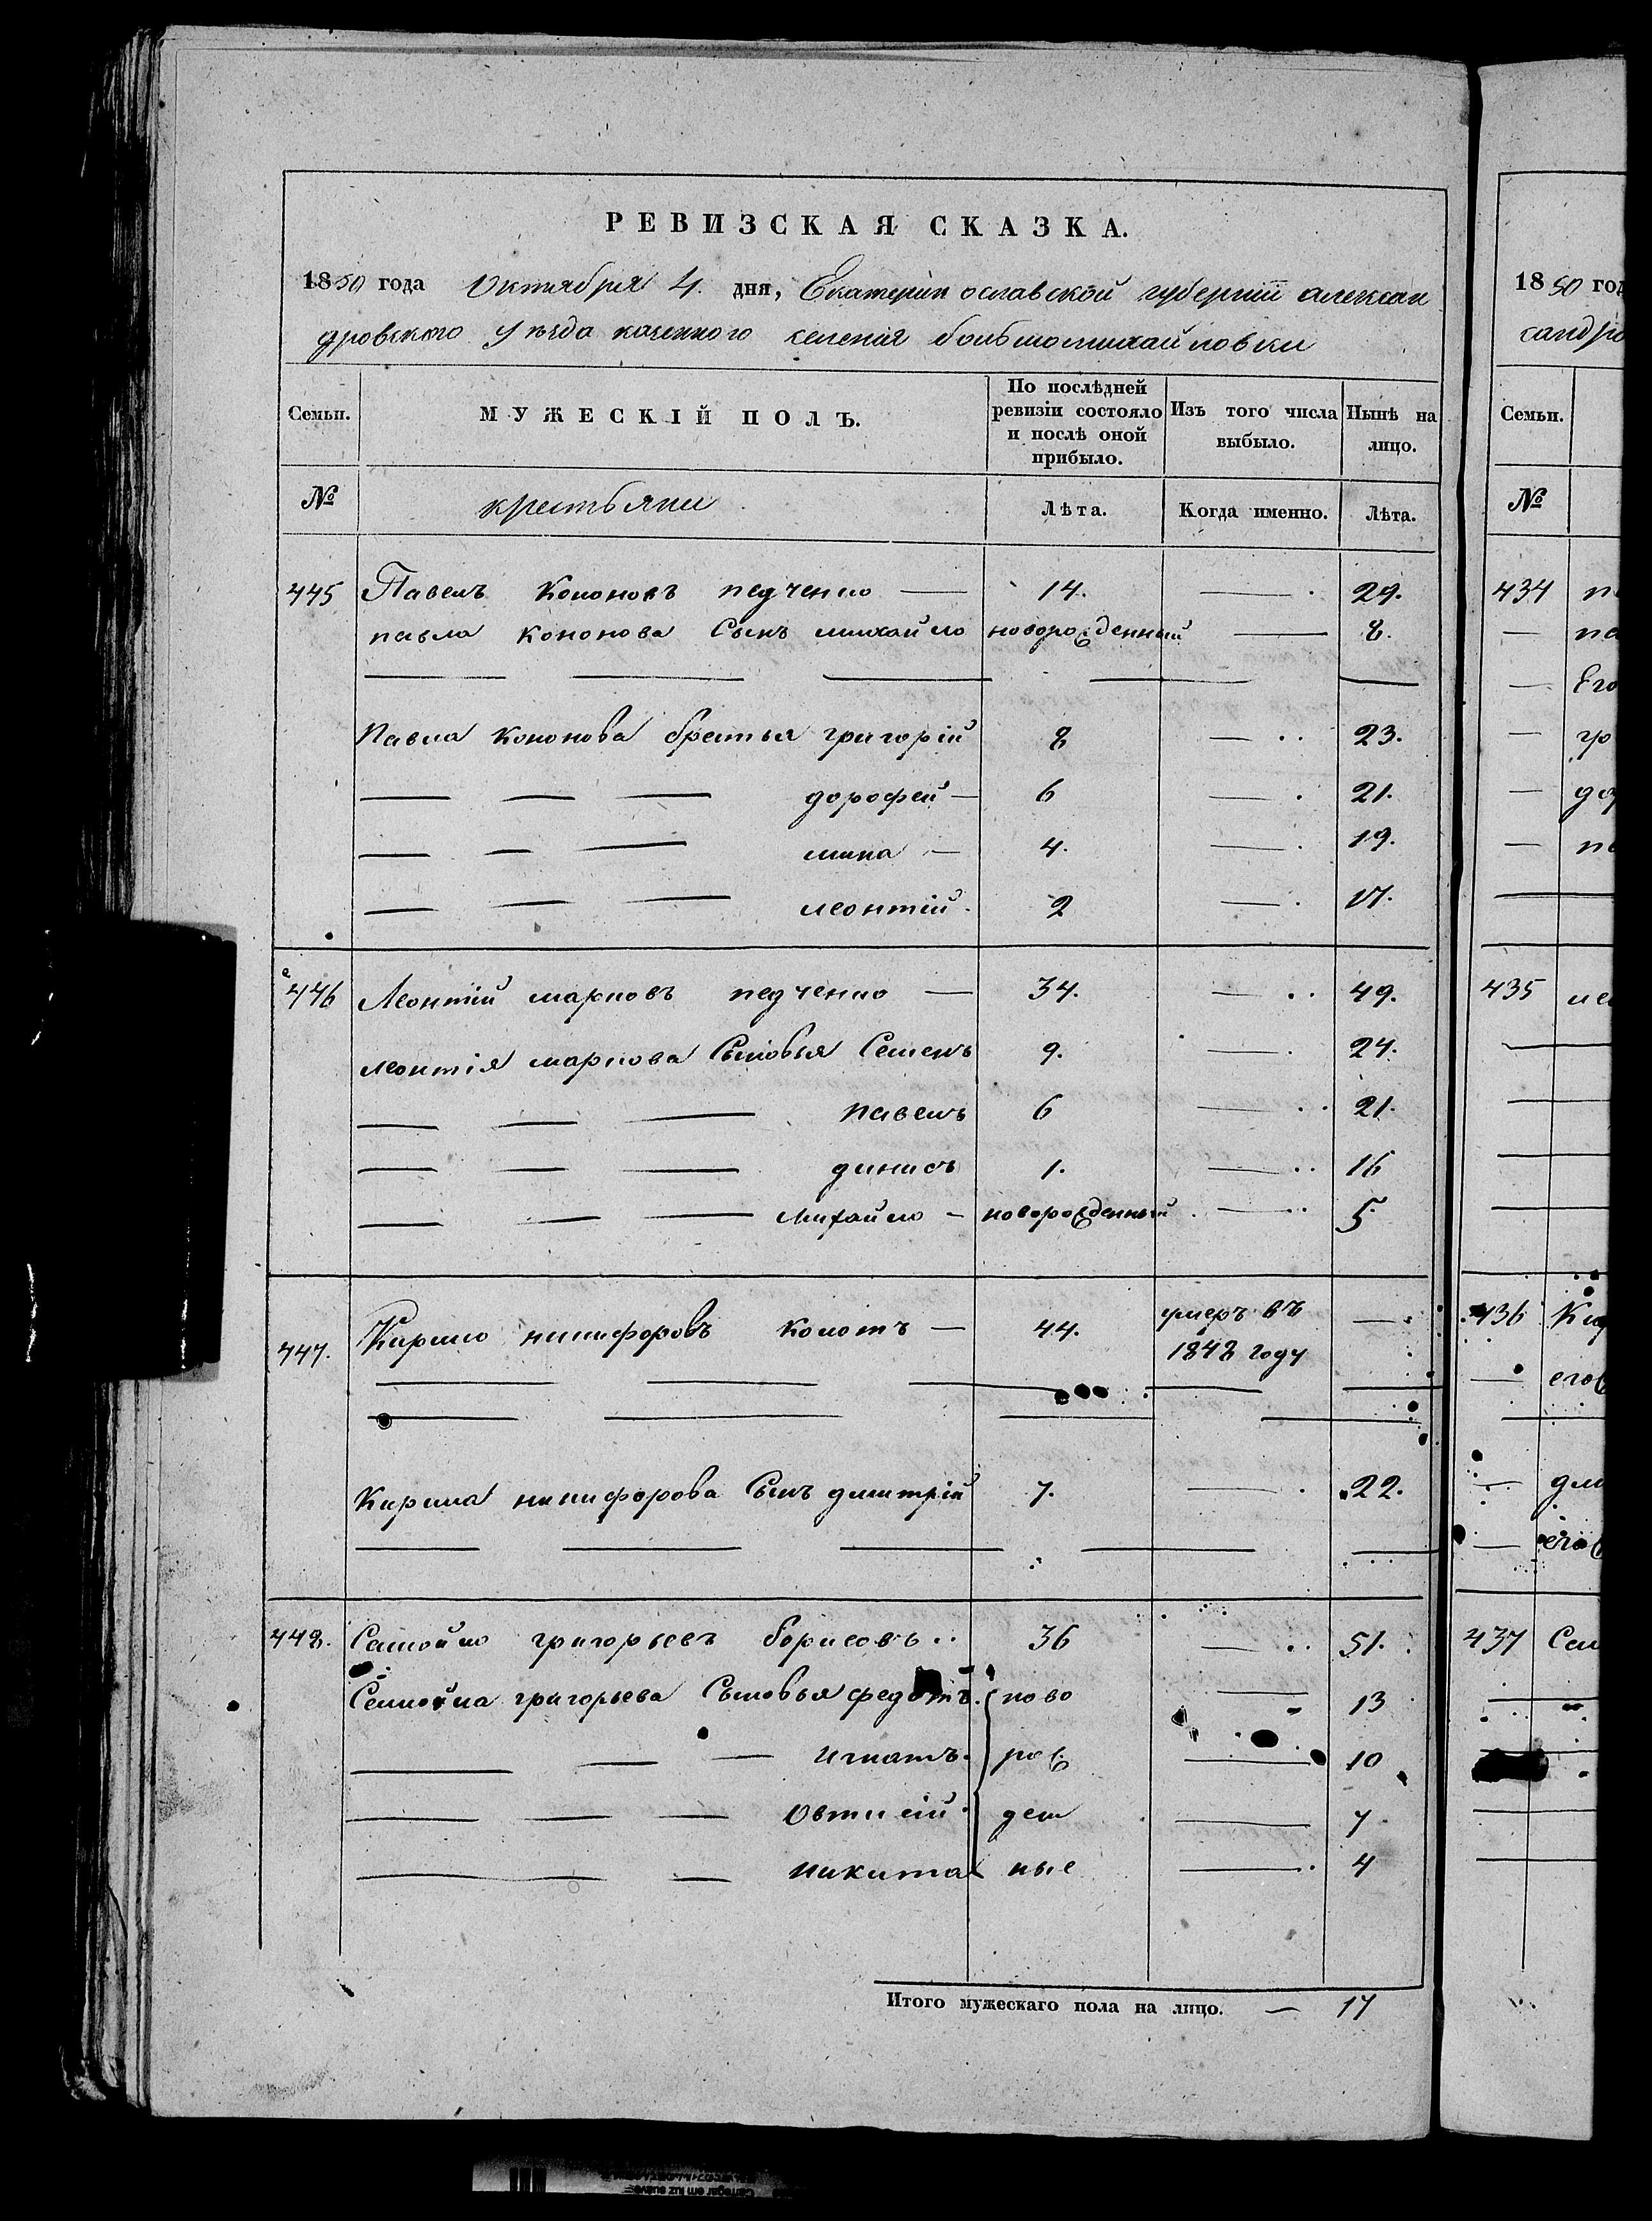 РЕВИЗСКАЯ СКАЗКА.
1850 года Октября 4. дня, Екатеринославской губернiи алексан
дровского Уѣзда казенного селенiя большомихайловки
Семьи. МУЖЕСКIЙ ПОЛЪ. По послѣдней ревизiи состояло и послѣ оной прибыло. Изъ того числа выбыло. Нынѣ на лицо.
№ крестьяни Лѣта. Когда именно. Лѣта.
445 Павелъ Кононовъ педченко — 14. — 29.
павла кононова Сынъ михайло новорожденный — 8.
Павла кононова братья григорiй 8 — 23.
дорофей — 6 — 21.
мина — 4. — 19.
леонтiй. 2 — 17.
446 Леонтiй марковъ педченко — 34. — 49.
леонтiя маркова Сыновья Семенъ 9. — 24.
павелъ 6 — 21.
динисъ 1. — 16
михайло — новорожденный — 5
447. Кирило никифоровъ Коломъ — 44. умеръ въ 1848 году —
Кирила никифорова Сынъ дмитрiй 7. — 22.
448. Самойло григорьевъ борисовъ 36 — 51.
Самойла григорьева Сыновья федотъ ново — 13
игнатъ рож — 10
овтисiй ден — 7
никита ные — 4
Итого мужескаго пола на лицо. — 17
1850 год
сандро
Семьи.
№
434 па
па
Его
гр
до
435 ле
436 Ки
его
дм
его
437 Сам